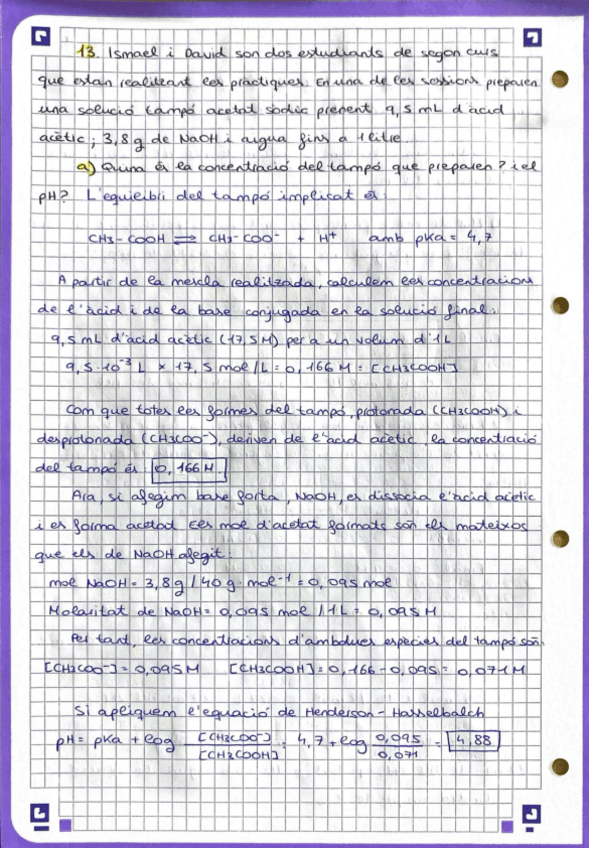 13. Ismael i David son dos estudiants de segon curs
que estan realitzant les pràctiques. En una de les sessions preparen
una solució tampó acetat sòdic prenent 9,5 mL d'àcid
acètic; 3,8 g de NaOH i aigua fins a 1 litre.
a) Quina és la concentració del tampó que preparen? i el
pH? L'equilibri del tampó implicat és:
CH3-COOH ⇌ CH3-COO⁻ + H⁺ amb pKa = 4,7
A partir de la mescla realitzada, calculem les concentracions
de l'àcid i de la base conjugada en la solució final:
9,5 mL d'àcid acètic (17,5 M) per a un volum d'1L
9,5·10⁻³ L × 17,5 mol/L = 0,166 M = [CH3COOH]
Com que totes les formes del tampó, protonada (CH3COOH) i
desprotonada (CH3COO⁻), deriven de l'àcid acètic, la concentració
del tampó és: 0,166 M.
Ara, si afegim base forta, NaOH, es dissocia l'àcid acètic
i es forma acetat. Els mol d'acetat formats són els mateixos
que els de NaOH afegit:
mol NaOH = 3,8 g / 40 g·mol⁻¹ = 0,095 mol
Molaritat de NaOH = 0,095 mol / 1L = 0,095 M
Per tant, les concentracions d'ambdues espècies del tampó són:
[CH3COO⁻] = 0,095 M [CH3COOH] = 0,166 - 0,095 = 0,071 M
Si apliquem l'equació de Henderson - Hasselbalch
pH = pKa + log [CH3COO⁻] / [CH3COOH] = 4,7 + log 0,095 / 0,071 = 4,88